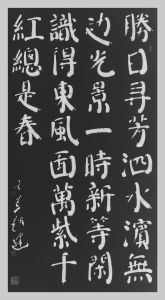 勝日尋芳泗水濱無
邊光景一時新等閑
識得東風面萬紫千
紅總是春